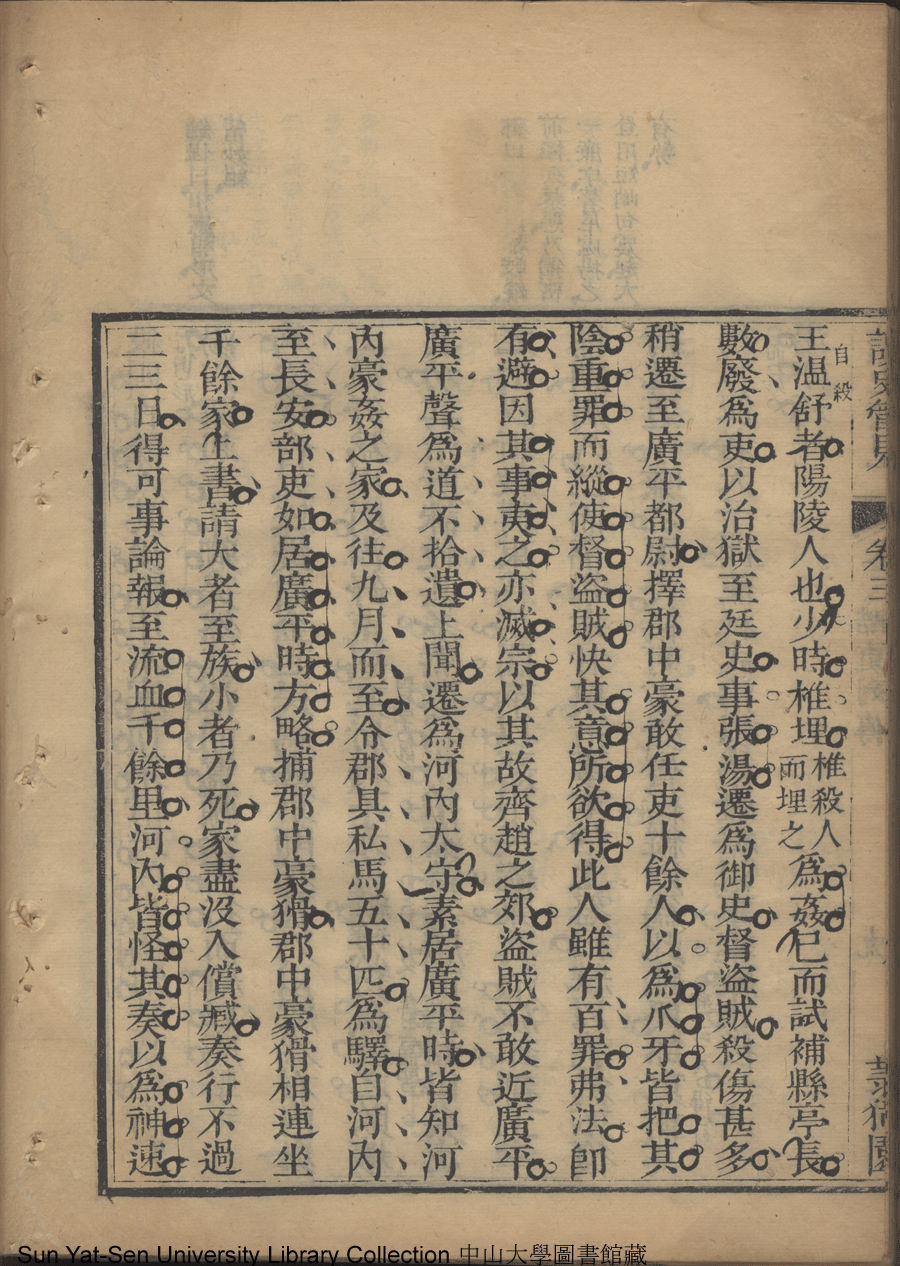 王温舒者陽陵人也少時椎埋椎殺人而埋之為姦已而試補縣亭長
自殺
數廢為吏以治獄至廷史事張湯遷為御史督盜賊殺傷甚多
稍遷至廣平都尉擇郡中豪敢任吏十餘人以為爪牙皆把其
陰重罪而縱使督盜賊快其意所欲得此人雖有百罪弗法卽
有避因其事夷之亦滅宗以其故齊趙之郊盜賊不敢近廣平
廣平聲為道不拾遺上聞遷為河內太守素居廣平時皆知河
內豪姦之家及往九月而至令郡具私馬五十匹為驛自河內
至長安部吏如居廣平時方略捕郡中豪猾郡中豪猾相連坐
千餘家上書請大者至族小者乃死家盡沒入償臧奏行不過
二三日得可事論報至流血千餘里河內皆怪其奏以為神速
卷三
Sun Yat-Sen University Library Collection 中山大學圖書館藏